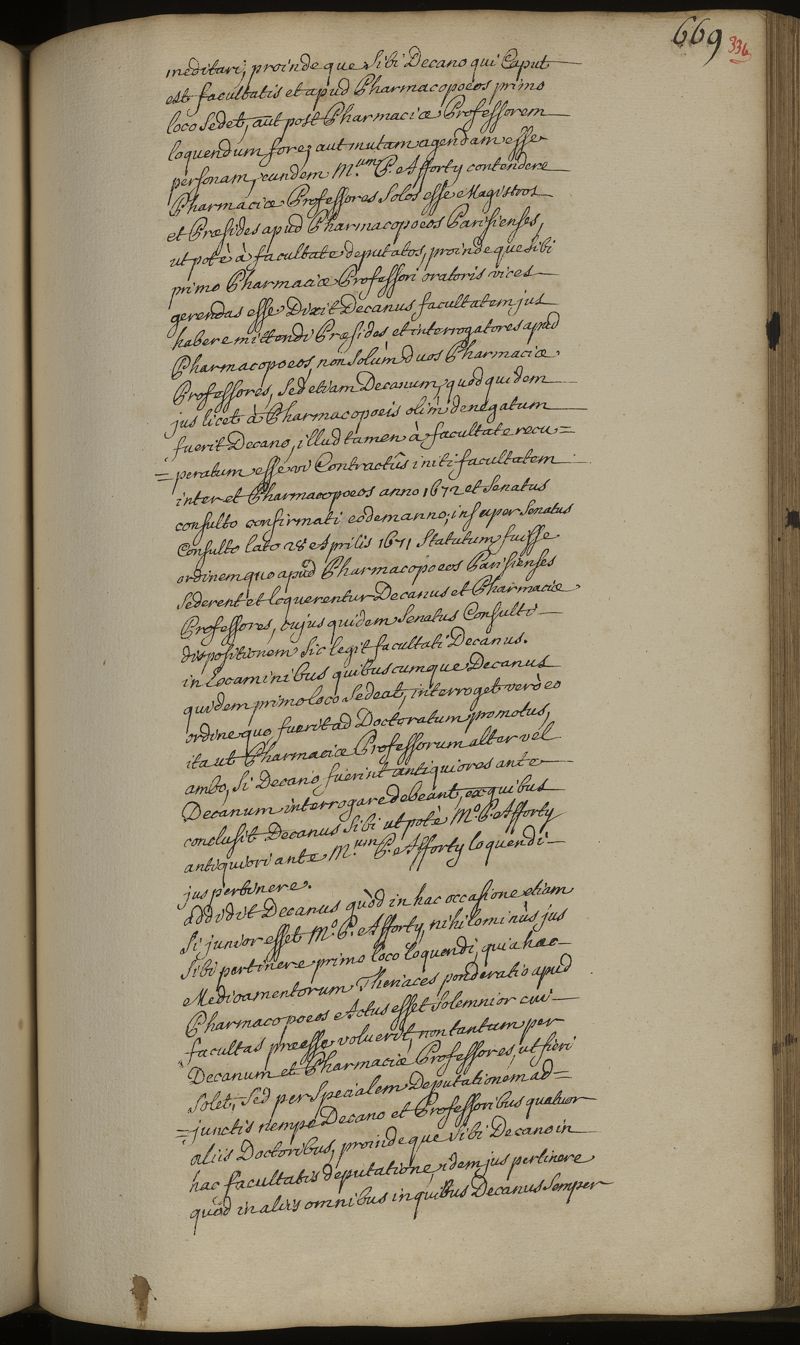 669
336
meditari; proindeque sibi Decano qui Caput
est facultatis et apud Pharmacopoeos primo
loco sedet, aut post Pharmaciæ Professorem
loquendum fore; aut mutam agendam esse
personam, eundem M.um P. Afforty contendere
Pharmaciæ Professores solos esse Magistros
et Præsides apud Pharmacopoeos Parisienses,
ut potè à facultate deputatos, proindeque sibi
primo Pharmaciæ Professori oratoris vices
gerendas esse Dixit Decanus facultatem jus
habere mittendi Præsides et interrogatores apud
Pharmacopoeos, non solùm duos Pharmaciæ
Professores, sed etiam Decanum, quod quidem
jus licet à Pharmacopoeis olim denegatum
fuerit Decano, illud tamen à facultate recu=
=peratum esse vi Contractûs initi facultatem
inter et Pharmacopoeos anno 1672 et Senatus
consulto confirmati eodem anno, insuper Senatus
Consulto lato 28 Aprilis 1671 Statutum fuisse
ordinem quo apud Pharmacopoeos Parisienses
sederent et loquerentur Decanus et Pharmaciæ
Professores, cujus quidem Senatus Consulti
dispositionem sic legit facultati Decanus.
in Examinibus quibuscumque Decanus
quidem primo loco sedeat, interroget verò eo
ordine quo fuerit ad Doctoratum promotus,
ita ut Pharmaciæ Professorum alter vel
ambo, si Decano fuerint antiquiores ante
Decanum interrogare debeant, ex quibus
conclusit Decanus sibi ut potè M.o P. Afforty
antiquiori ante M.um P. Afforty loquendi
jus pertinere.
addidit Decanus quòd in hac occasione etiam
si junior esset M.o P. Afforty, nihilominùs jus
sibi pertinere primo loco loquendi, quia hæc
Medicamentorum Theriaces ponderatio apud
Pharmacopoeos Actus esset solemnior cui
facultas præesse voluerit, non tantum per
Decanum et Pharmaciæ Professores, ut fieri
solet, sed per specialem Deputationem ad=
=junctis nempe Decano et Professoribus quatuor
aliis Doctoribus, proindeque sibi Decano in
hac facultatis deputatione, idem jus pertinere
quod in aliis omnibus in quibus Decanus semper